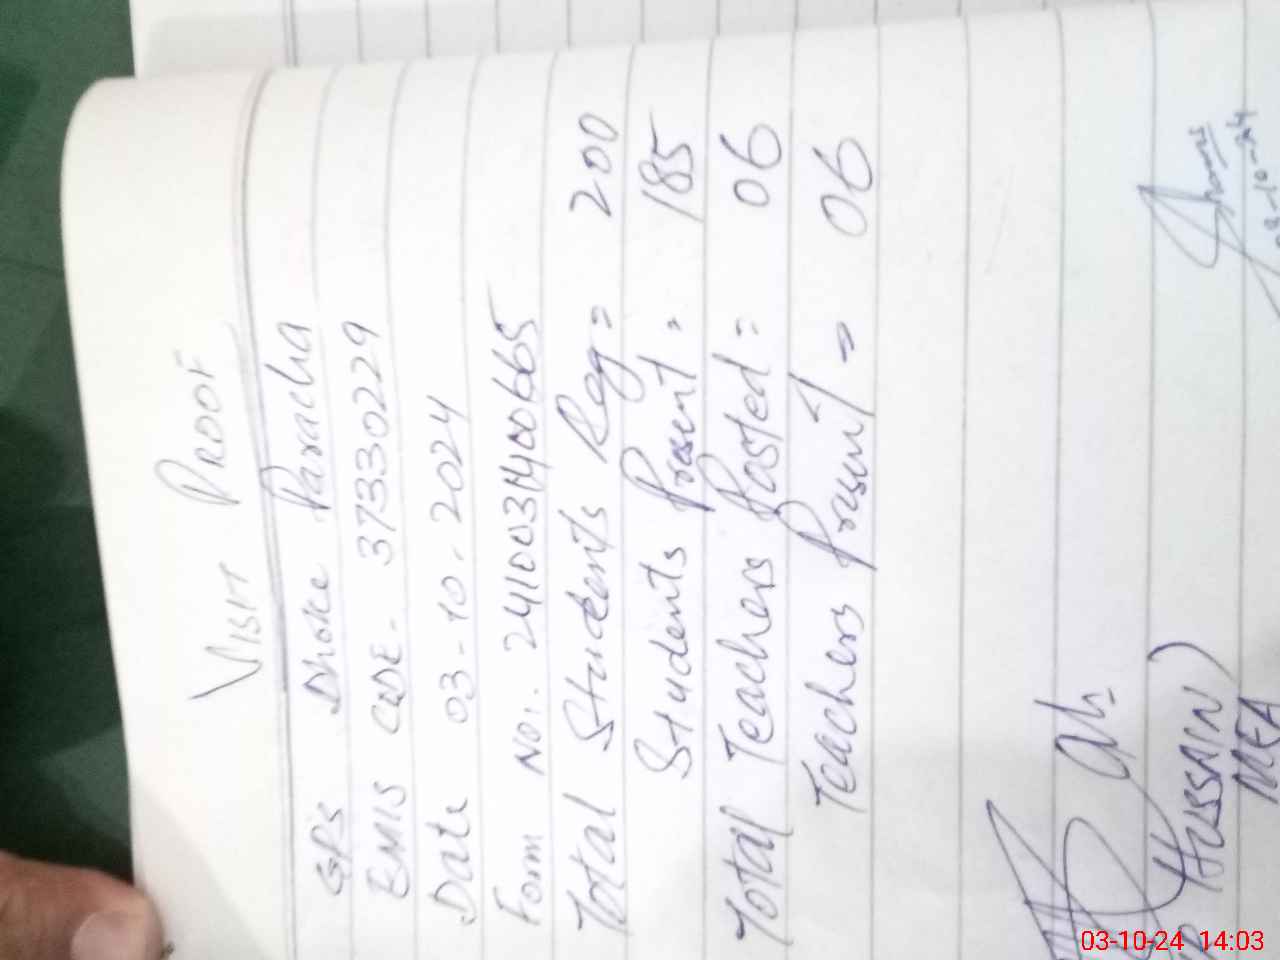 VISIT PROOF
GPS Dhoke Paracha
EMIS CODE - 37330229
Date 03-10-2024
Form No:. 2410031400665
Total Students Reg = 200
Students Present = 185
Total Teachers Posted = 06
Teachers Present = 06
HUSSAIN)
MEA
03-10-24 14:03